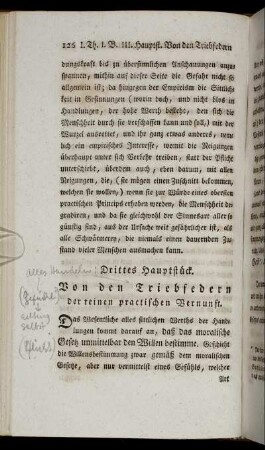 126 I. Th. I. B. III. Hauptst. Von den Triebfedern
dungskraft bis zu übersinnlichen Anschauungen anzu
spannen, mithin auf dieser Seite die Gefahr nicht so
allgemein ist; da hingegen der Empirism die Sittlich-
keit in Gesinnungen (worin doch, und nicht blos in
Handlungen, der hohe Werth besteht, den sich die
Menschheit durch sie verschaffen kann und soll,) mit der
Wurzel ausrottet, und ihr ganz etwas anderes, nem-
lich ein empirisches Interesse, womit die Neigungen
überhaupt unter sich Verkehr treiben, statt der Pflicht
unterschiebt, überdem auch, eben darum, mit allen
Neigungen, die, (sie mögen einen Zuschnitt bekommen,
welchen sie wollen,) wenn sie zur Würde eines obersten
practischen Princips erhoben werden, die Menschheit de-
gradiren, und da sie gleichwohl der Sinnesart aller so
günstig sind, aus der Ursache weit gefährlicher ist, als
alle Schwärmerey, die niemals einen daurenden Zu-
stand vieler Menschen ausmachen kann.
Drittes Hauptstück.
Von den Triebfedern
der reinen practischen Vernunft.
Das Wesentliche alles sittlichen Werths der Hand-
lungen kommt darauf an, daß das moralische
Gesetz unmittelbar den Willen bestimme. Geschieht
die Willensbestimmung zwar gemäß dem moralischen
Gesetze, aber nur vermittelst eines Gefühls, welcher
Art